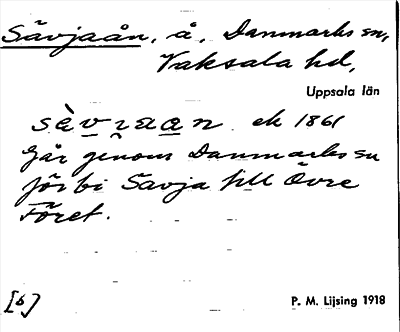 Sävjaån, å, Danmarks sn,
Vaksala hd,
Uppsala län
ek 1861
Går genom Danmarks sn
förbi Sävja till Övre
Föret.
[b]
P. M. Lijsing 1918